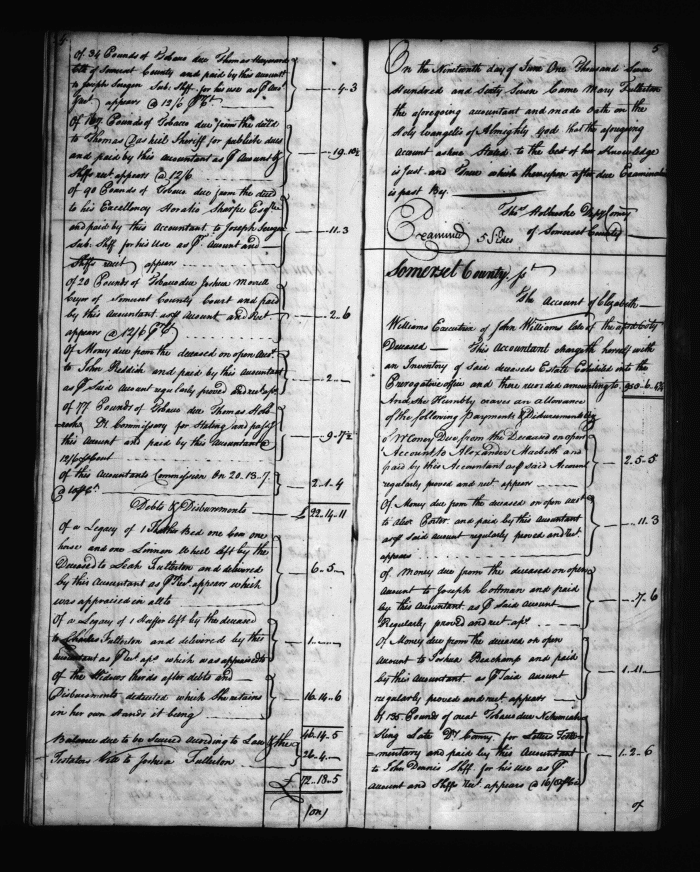 Of 34 Pounds of Tobaco due Thomas Hayward
Clk of Somerset County and paid by this account
to Joseph Sub. Shff. for his use as
appears @ 12/6 — 4.3
Of Pounds of Tobacco due from the dec'd
to Thomas Dashiel Sheriff for publick dues
and paid by this accountant as ⅌ Account &
Shffs rect appears @ 12/6 — 19.10½
Of 90 Pounds of Tobacco due from the dec'd
to his Excellency Horatio Sharpe Esqr
and paid by this Accountant to Joseph
Sub. Shff for his use as ⅌ Account and
Shffs rect appears — 11.3
Of 20 Pounds of Tobacco due Joshua Morell
Cryer of Somerset County Court and paid
by this Accountant as ⅌ Account and Rect
appears @ 12/6 ⅌ Ct — 2..6
Of Money due from the deceased on open Acct
to John Reddish and paid by this accountant
as ⅌ Said account regularly proved and rect aps — 2..—
Of 77 Pounds of Tobacco due Thomas Holb
rooke Dy Commissary for Stating and passg
this Account and paid by this Accountant @
12/6 ⅌ Cent — 9.7½
Of this Accountants Commission On 20.13.7
@ 10 ⅌ Ct — 2.1.4
Debts & Disbursments — £ 22.14.11
Of a Legacy of 1 Feather Bed one Cow one
horse and one Linnen Wheel left by the
Deceased to Leah Fullerton and delivered
by this Accountant as ⅌ Rect. appears which
was appraised in all to — 6..5—
Of a Legacy of 1 Heifer left by the deceased
to Charles Fullerton and delivered by this
accountant as ⅌ Rect aps which was appraised to — 1..—
of the Widows thirds after debts and
Disbursments deducted which She retains
in her own hands it being — 16.14..6
46.14.5
Balance due to be Secured According to Law of the
Testators to Joshua Fullerton — 26..4..—
£ 72..18..5
(on)
5
On the Nineteenth day of June One Thousand Seven
Hundred and Sixty Seven Came Mary Fullerton
the aforegoing accountant and made oath on the
Holy Evangelis of Almighty God that the aforegoing
Account as here Stated to the best of her Knowledge
is Just and True which thereupon after due Examination
is past By
Thos Holbrooke Depy Comry
of Somerset County
Examined 5 Sides
Somerset County. Sct
The Account of Elizabeth
Williams Executrix of John Williams late of the aforesd Coty
Deceased — This Accountant Chargeth herself with
an Inventory of Said deceaseds Estate Exhibited into the
Prerogative office and there recorded amounting to 930..6..
And She Humbly craves an allowance
of the following Payments & Disbursments Viz
of Money Due from the Deceased on open
Account to Alexander Macbeth and
paid by this Accountant as ⅌ Said Account
regularly proved and rect appears — 2.5..5
Of Money due from the deceased on open acct
to Alexr Porter and paid by this Accountant
as ⅌ Said account regularly proved and Rect
appears — 11.3
of Money due from the deceased on open
Account to Joseph Cottman and paid
by this Accountant as ⅌ Said Account
Regularly proved and rect aps — 7..6
Of Money due from the deceased on open
Account to Joshua Beachamp and paid
by this Accountant as ⅌ Said account
regularly proved and rect appears — 1.11—
Of 135 Pounds of neat Tobacco due Nehemiah
King Late Dy Comry for Letters Testa
mentary and paid by this Accountant
to John Dennis Shff for his Use as ⅌
Account and Shffs Rect. appears @ 16/8 — 1..2..6
of